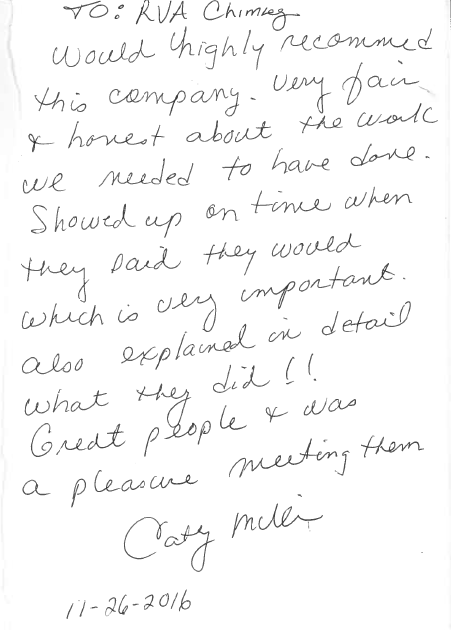 TO: RVA Chimney
Would highly recommed
this company. Very fair
& honest about the work
we needed to have done.
Showed up on time when
they said they would
which is very important.
also explained in detail
what they did!!
Great people & was
a pleasure meeting them
Caty
11-26-2016